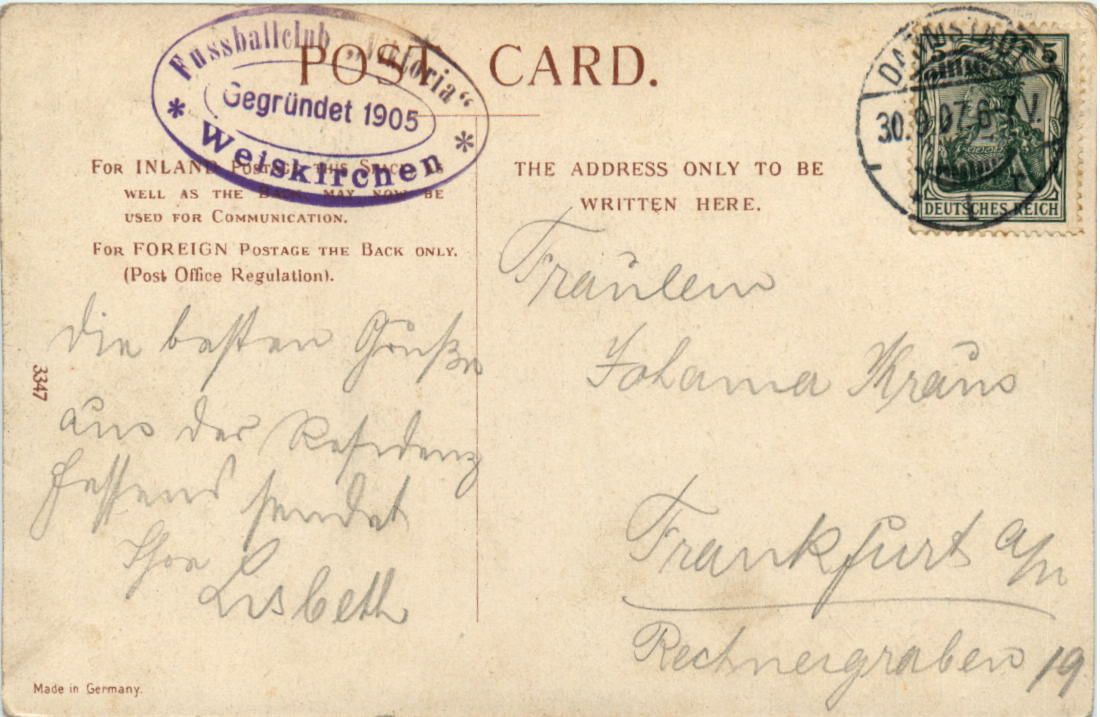 Fussballclub „Viktoria“
Gegründet 1905
* Weiskirchen *
POST CARD.
DARMSTADT
30.9.07.6-7V.
5
DEUTSCHES REICH
FOR INLAND POSTAGE THIS SPACE AS
WELL AS THE BACK MAY NOW BE
USED FOR COMMUNICATION.
FOR FOREIGN POSTAGE THE BACK ONLY.
(Post Office Regulation).
THE ADDRESS ONLY TO BE
WRITTEN HERE.
Die besten Grüße
aus der Residenz
Hessens sendet
Ihre
Lisbeth
Fräulein
Johanna Kraus
Frankfurt a/M
Rechneigraben 19
3347
Made in Germany.